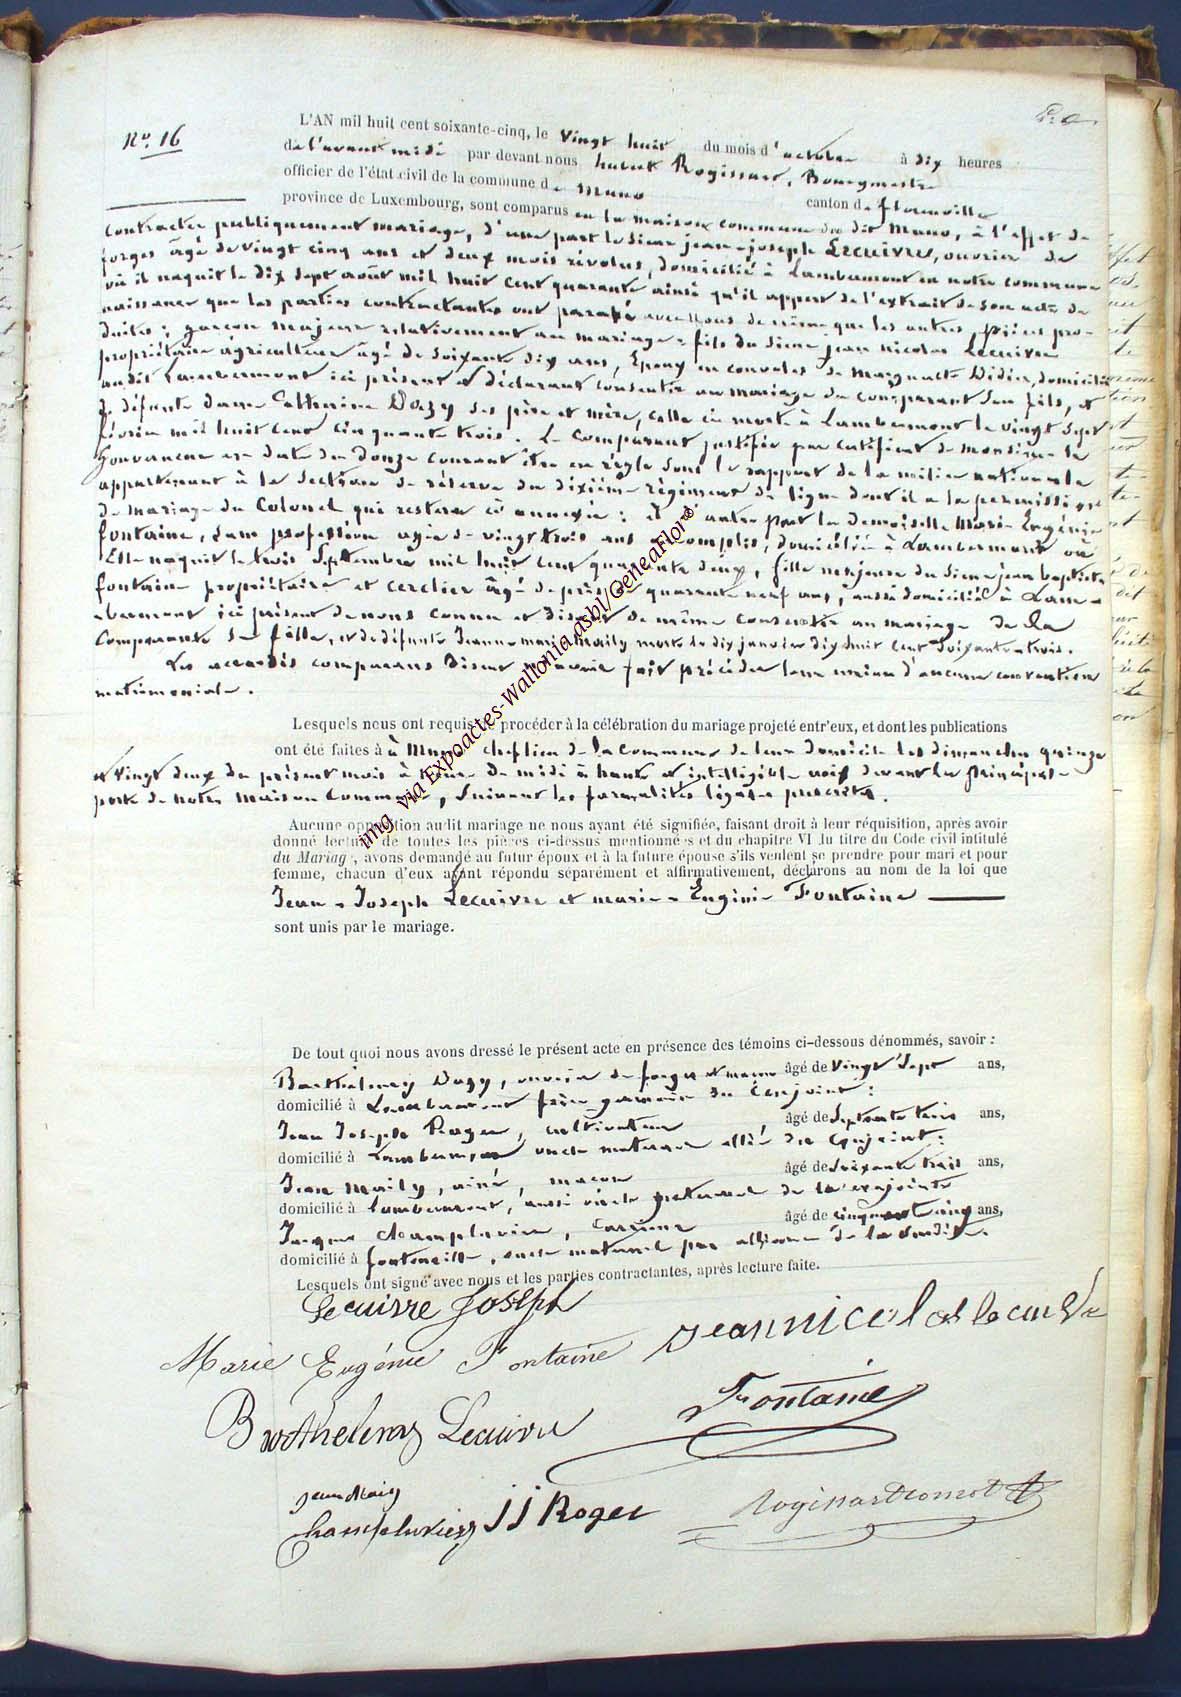 No. 16
L'AN mil huit cent soixante-cinq, le vingt huit du mois d'octobre à dix heures
de l'avant midi par devant nous hubert Rogissart, Bourgmestre
officier de l'état civil de la commune de Muno canton de florenville
province de Luxembourg, sont comparus en la maison commune dudit Muno, à l'effet de
contracter publiquement mariage, d'une part le sieur jean-joseph Lecuivre, ouvrier de
forges âgé de vingt cinq ans et deux mois révolus, domicilié à Lambermont en notre commune
où il naquit le dix sept août mil huit cent quarante ainsi qu'il appert de l'extrait de son acte de
naissance que les parties contractantes ont paraphé avec nous de même que les autres pièces pro-
duites; garçon majeur relativement au mariage, fils du sieur jean nicolas Lecuivre
propriétaire agriculteur âgé de soixante dix ans, Epoux en convoles de Marguerite Didier, domicilié
audit Lambermont ici présent et déclarant consentir au mariage du comparant son fils, et
de défunte dame Catherine Dozy ses père et mère, celle ci morte à Lambermont le vingt sept
février mil huit cent cinquante trois. Le comparant justifie par certificat de monsieur le
gouverneur en date du douze courant être en règle sous le rapport de la milice nationale
appartenant à la section de réserve du dixième régiment de ligne dont il a la permission
de mariage du Colonel qui restera ci annexée: et d'autre part la demoiselle Marie Eugénie
fontaine, sans profession âgée de vingt trois ans accomplis, domiciliée à Lambermont où
Elle naquit le trois Septembre mil huit cent quarante deux, fille majeure du sieur jean baptiste
fontaine propriétaire et cerclier âgé de près de quarante neuf ans, aussi domicilié à Lam-
bermont ici présent de nous connu et disant de même consentir au mariage de la
Comparante sa fille, et de défunte Jeanne marie Maily morte le dix janvier dix huit cent soixante trois.
Les accordés comparans disent n'avoir fait précéder leur union d'aucune convention
matrimoniale.
Lesquels nous ont requis de procéder à la célébration du mariage projeté entr'eux, et dont les publications
ont été faites à à Muno chef lieu de la commune de leur domicile les dimanches quinze
et vingt deux du présent mois à l'heure de midi à haute et intelligible voix devant la principale
porte de notre Maison Commune, suivant les formalités légales prescrites.
Aucune opposition audit mariage ne nous ayant été signifiée, faisant droit à leur réquisition, après avoir
donné lecture de toutes les pièces ci-dessus mentionnées et du chapitre VI du titre du Code civil intitulé
du Mariage, avons demandé au futur époux et à la future épouse s'ils veulent se prendre pour mari et pour
femme, chacun d'eux ayant répondu séparément et affirmativement, déclarons au nom de la loi que
Jean-Joseph Lecuivre et marie-Eugénie Fontaine
sont unis par le mariage.
De tout quoi nous avons dressé le présent acte en présence des témoins ci-dessous dénommés, savoir:
Barthélemy ouvrier de forges et âgé de vingt sept ans,
domicilié à Lambermont frère germain du Conjoint:
Jean Joseph Roger, cultivateur âgé de septante trois ans,
domicilié à Lambermont oncle maternel allié du Conjoint:
Jean Maily, ainé, macon âgé de soixante trois ans,
domicilié à lambermont, aussi oncle paternel de la conjointe
Jacques Champluvier, Carrier âgé de cinquante cinq ans,
domicilié à fontenoille, oncle maternel par alliance de la susdite.
Lesquels ont signé avec nous et les parties contractantes, après lecture faite.
Lecuivre Joseph
Marie Eugénie Fontaine jean nicolas lecuivre
Barthelemy Lecuivre Fontaine
jean Maily
Champluvier JJ Roger Rogissart
img via Expoactes-Wallonia.asbl/GeneaFlor®